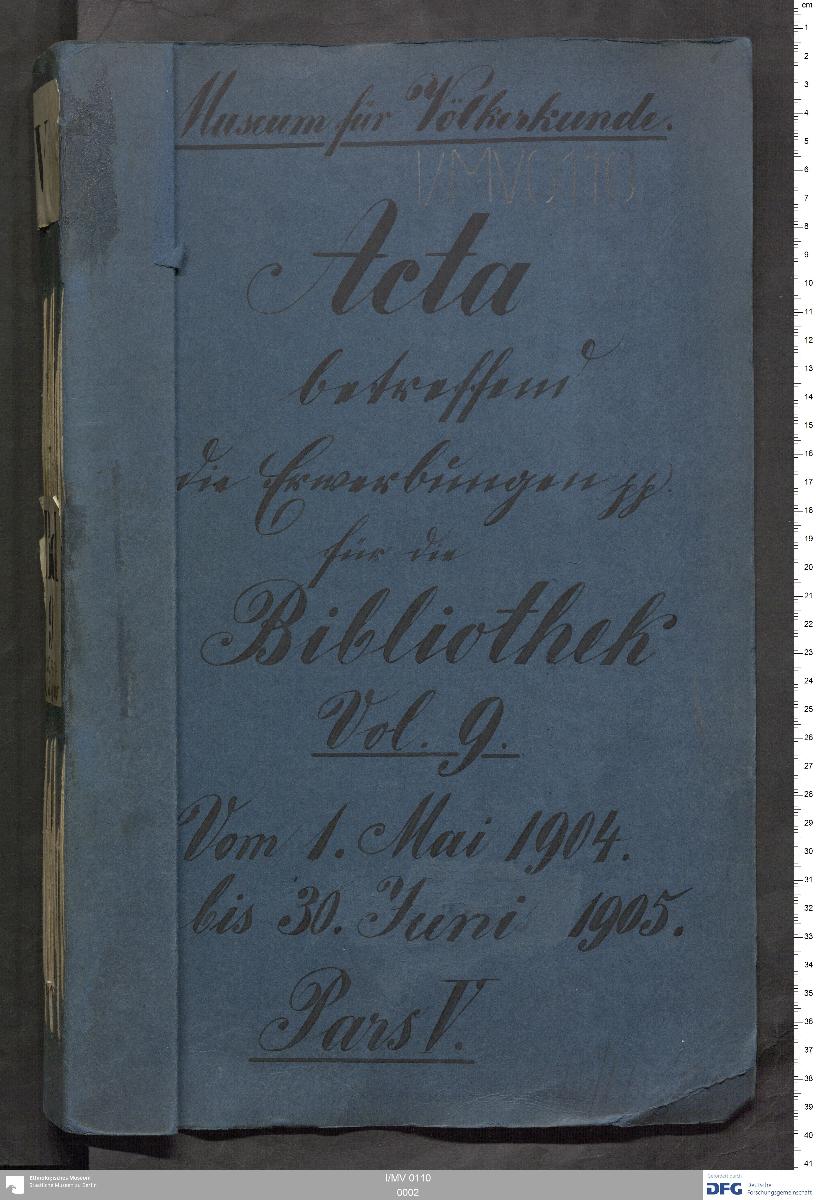 Museum für Völkerkunde.
I/MV 0110
Acta
betreffend
die Erwerbungen pp.
für die
Bibliothek
Vol. 9.
Vom 1. Mai 1904.
bis 30. Juni 1905.
Pars V.
V
cm
1
2
3
4
5
6
7
8
9
10
11
12
13
14
15
16
17
18
19
20
21
22
23
24
25
26
27
28
29
30
31
32
33
34
35
36
37
38
39
40
41
Ethnologisches Museum
Staatliche Museen zu Berlin
I/MV 0110
0002
Gefördert durch
DFG Deutsche
Forschungsgemeinschaft